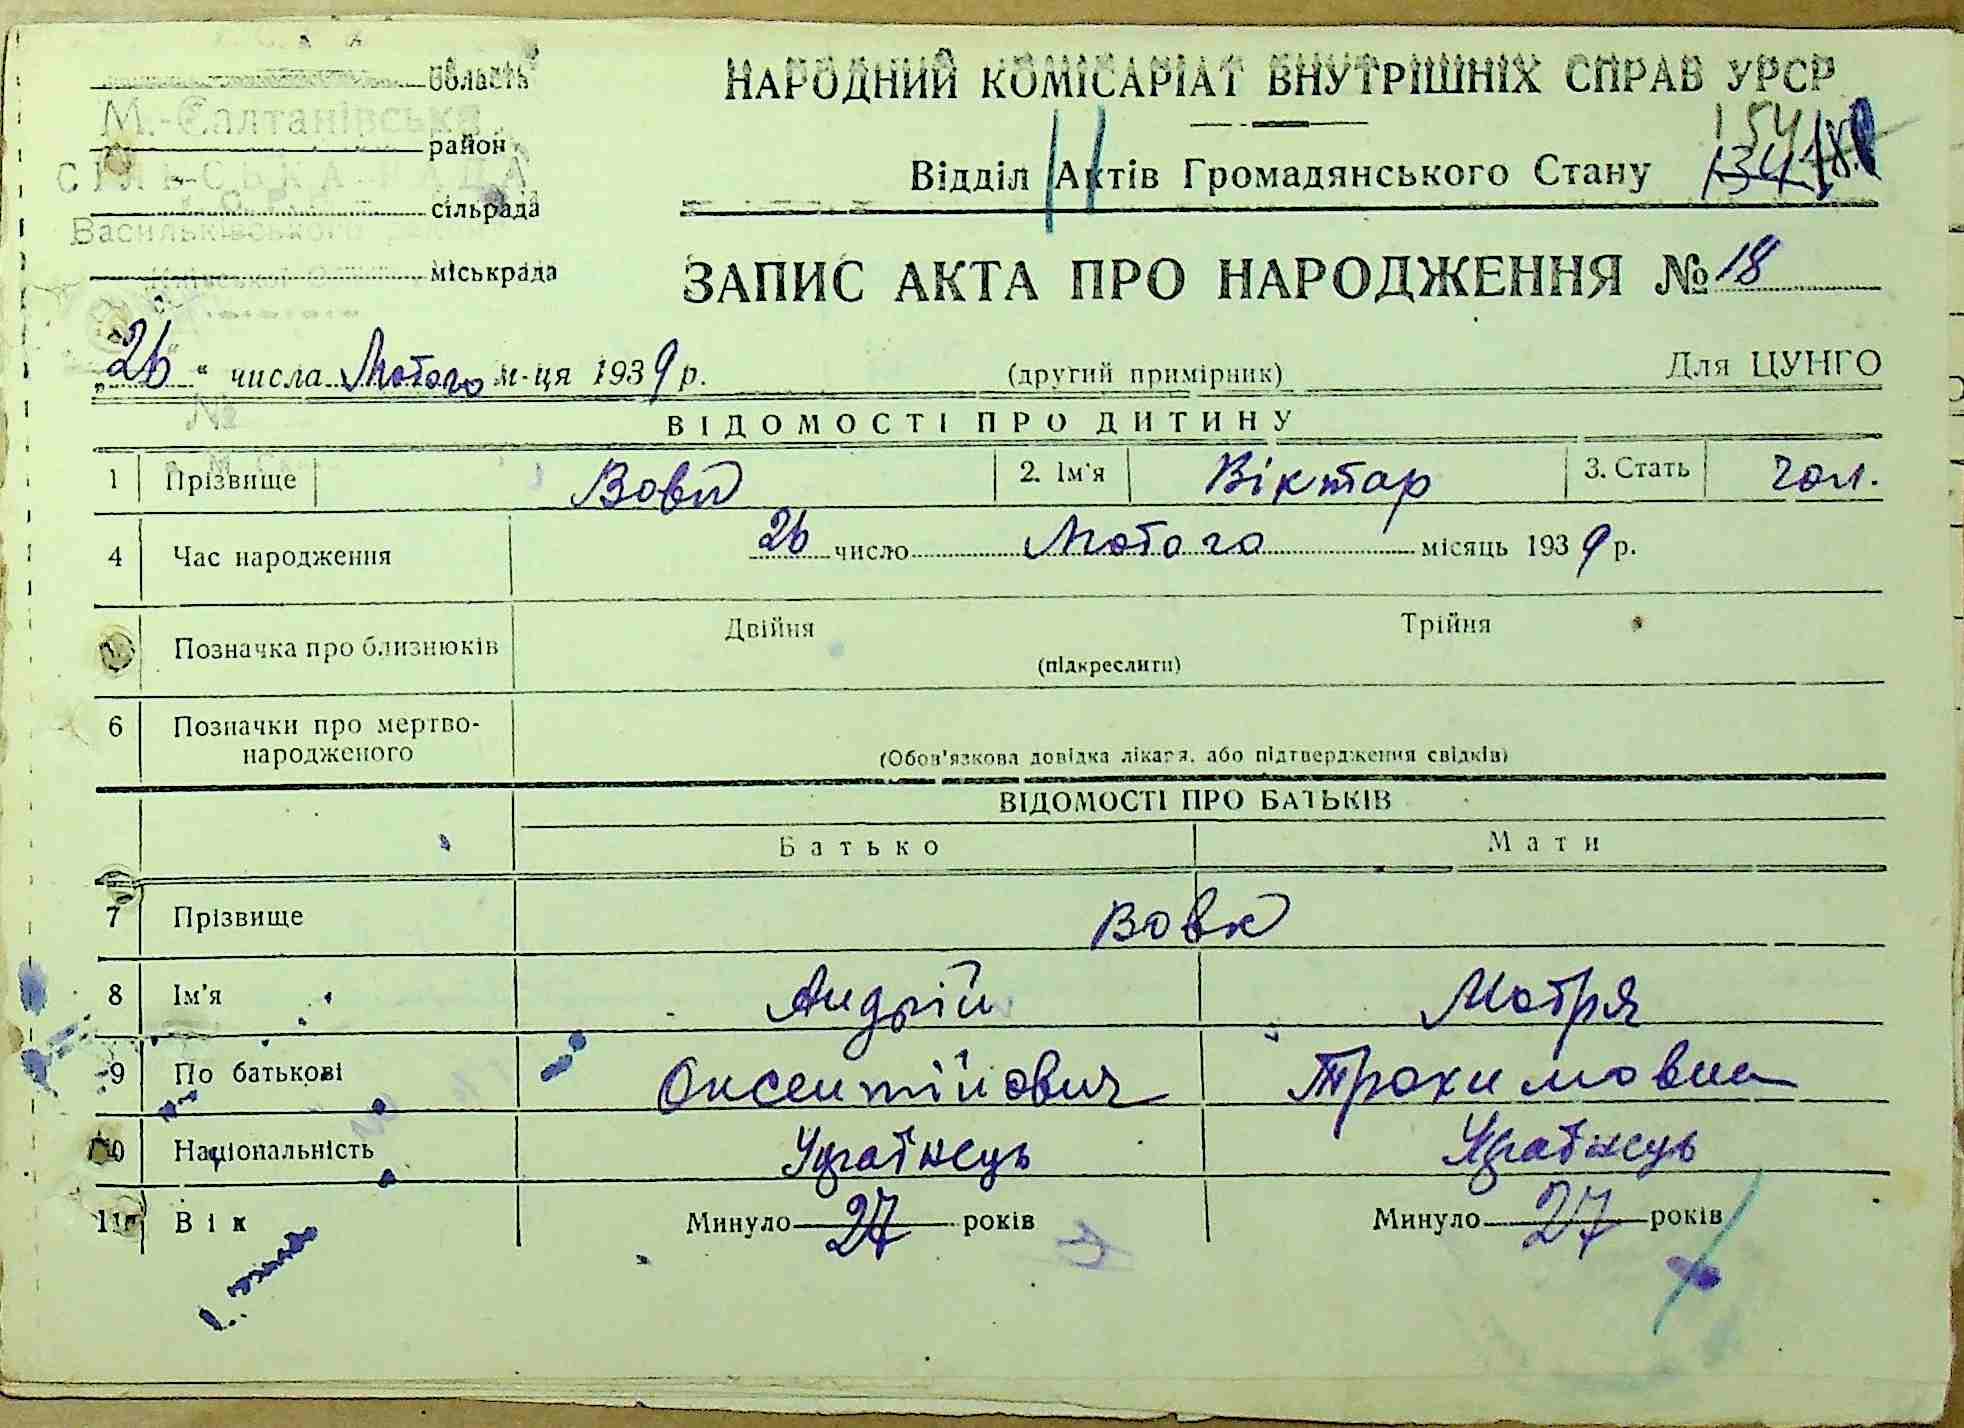 область
М.-Салтанівська
район
СІЛЬСЬКА РАДА
сільрада
Васильківського
міськрада
НАРОДНИЙ КОМІСАРІАТ ВНУТРІШНІХ СПРАВ УРСР
154
134
Відділ Актів Громадянського Стану
ЗАПИС АКТА ПРО НАРОДЖЕННЯ № 18
„26“ числа Лютого м-ця 1939 р. (другий примірник) Для ЦУНГО
№
ВІДОМОСТІ ПРО ДИТИНУ
1 Прізвище Вовк 2. Ім'я Віктар 3. Стать чол.
4 Час народження 26 число Лютого місяць 1939 р.
Позначка про близнюків Двійня Трійня
(підкреслити)
6 Позначки про мертво-
народженого
(Обов'язкова довідка лікаря, або підтвердження свідків)
ВІДОМОСТІ ПРО БАТЬКІВ
Батько Мати
7 Прізвище Вовк
8 Ім'я Андрій Мотря
9 По батькові Оксентійович Трохимовна
10 Національність Українець Українець
11 Вік Минуло 27 років Минуло 27 років